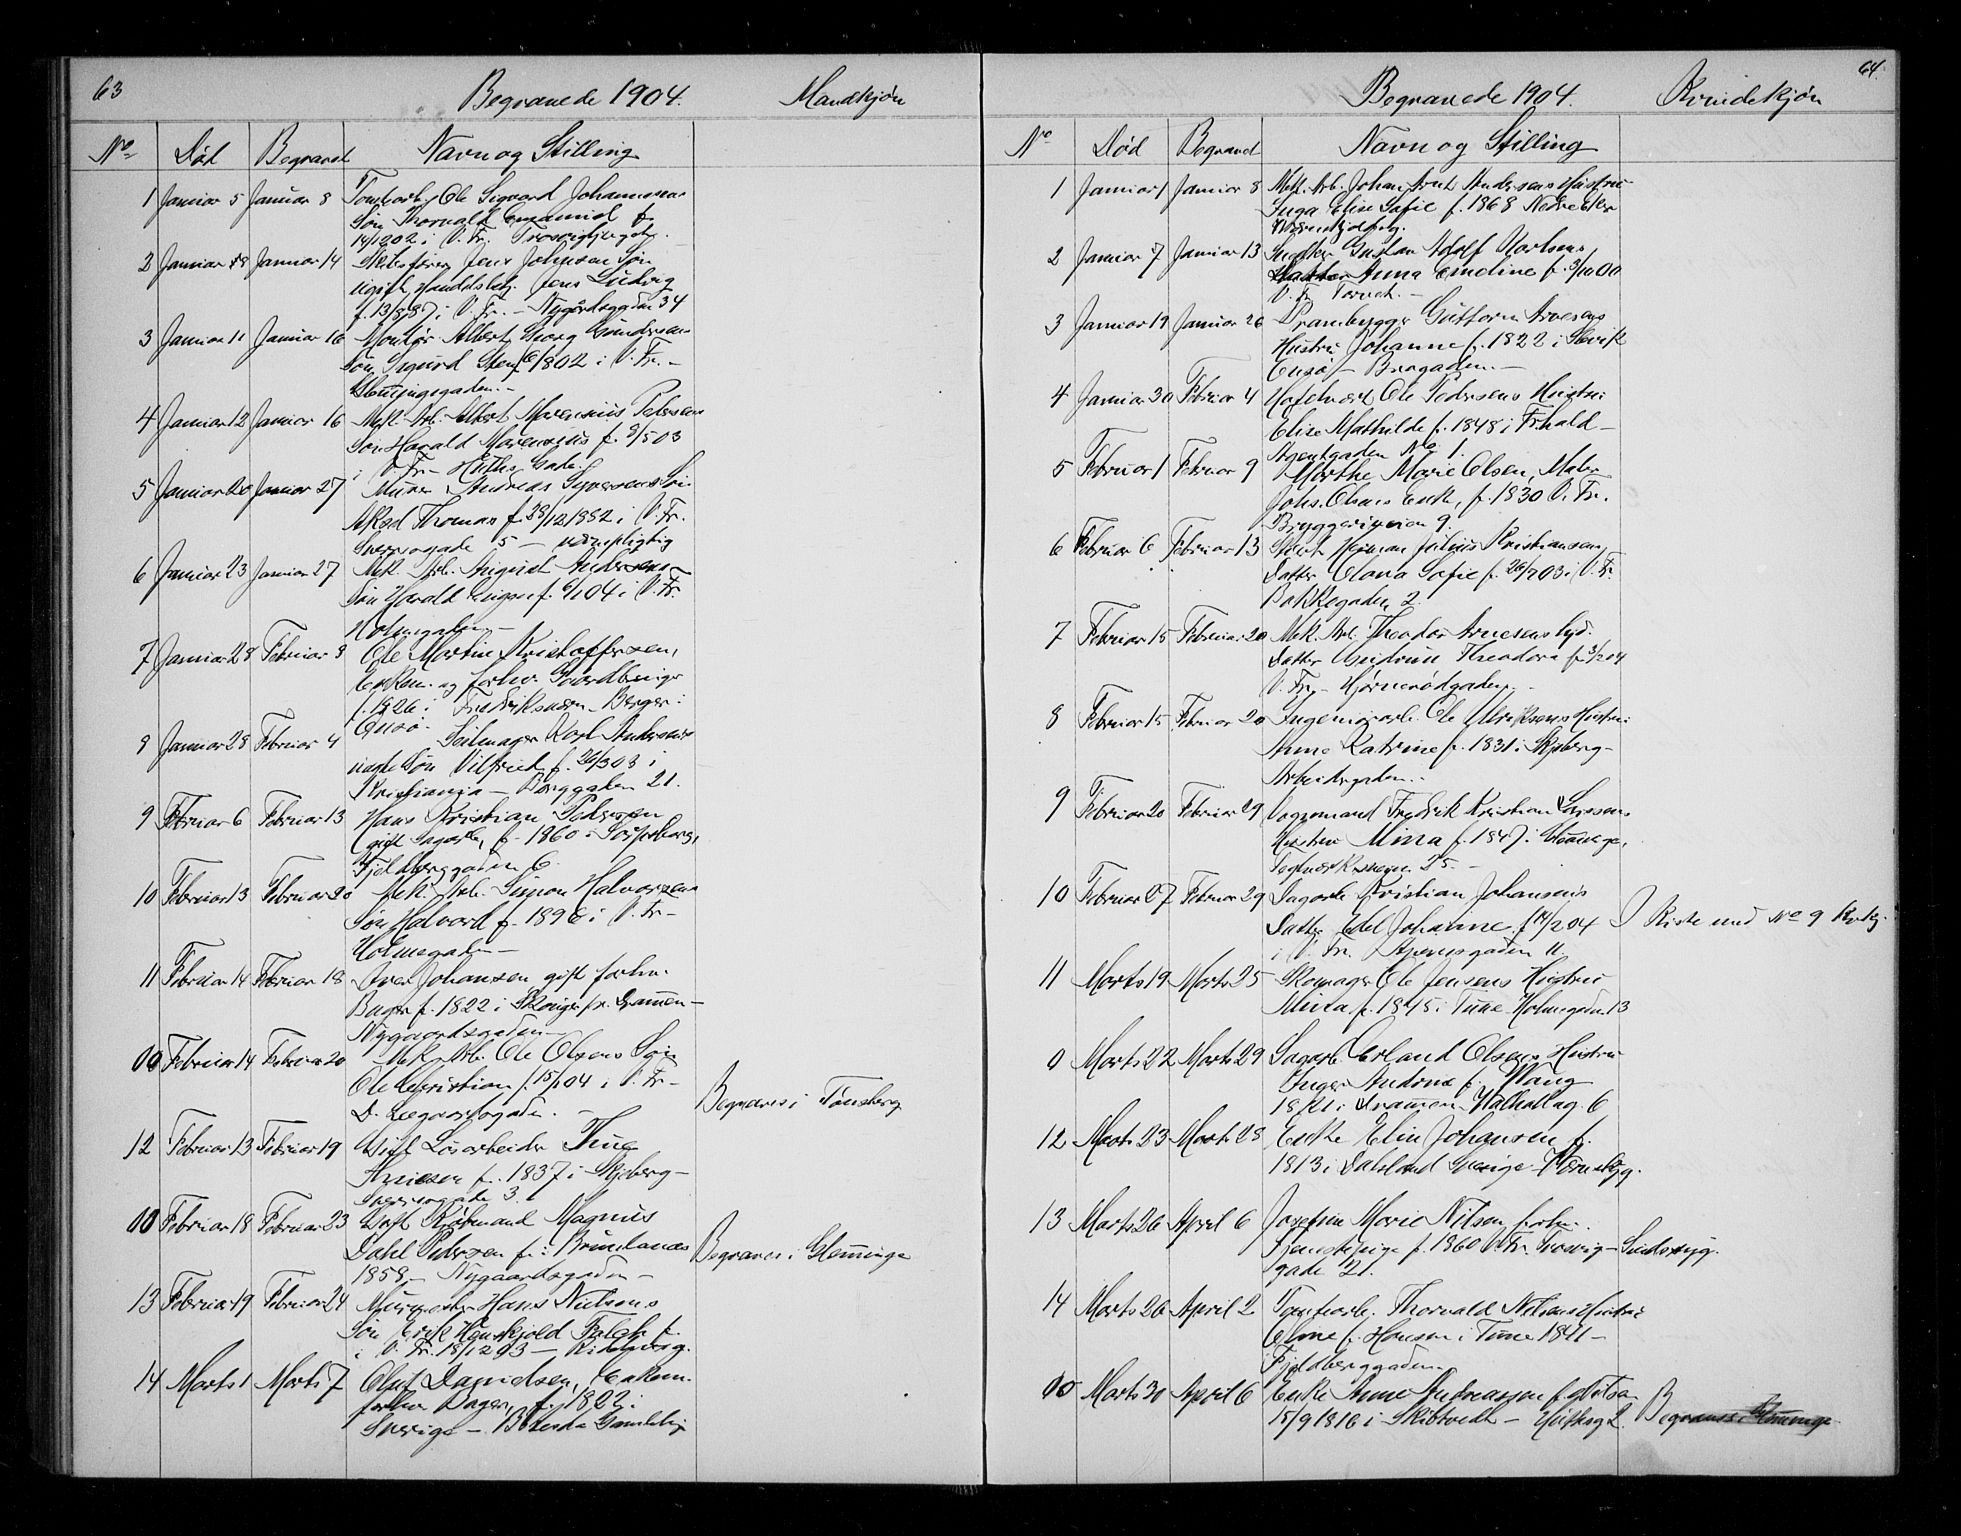 63
Begravede 1904. Mandkjøn
No Død Begravet Navn og Stilling
1 Januar 5 Januar 8 Tomtearb. Ole Sigvard Johannesens
Søn Thorvald f.
14/12 02 i V. Fr.
2 Januar Januar 14 Skibsfører Jens Johnsen Søn
ugift Handelsbetj. Jens Ludvig
f. 13/5 87 i V. Fr. - Nygårdsgaden 34
3 Januar 11 Januar 16 Montør Albert Georg Gundersens
Søn Sigurd Sten f. 02 i V. Fr. -
Glemmingegaden. -
4 Januar 12 Januar 16 Mek. Arb. Albert Marensius Pedersens
Søn Harald Marensius f. 8/5 03
i V. Fr. - Huths Gade.
5 Januar 20 Januar 27 Murer Andreas Syversens Søn
Aksel Thomas f. 28/12 1882 i V. Fr.
Sverresgade 5 - værnepligtig
6 Januar 23 Januar 27 Mek. Arb. August Andersens
Søn Harald f. 6/1 04 i V. Fr.
Holmegaden -
7 Januar 28 Februar 3 Ole Martin Kristoffersen,
Enkem. og forhv. Gaardbruger
f. 1826 i Fredriksværn - Berger i
Onsø.
8 Januar 28 Februar 4 Seilmager Karl Andersens
uægte Søn Vilfried f. 26/3 03 i
Kristiania - Borggaden 21.
9 Februar 6 Februar 13 Hans Kristian Pedersen
gift Sagarb., f. 1860 i Sarpsborg,
Fjeldberggaden 6.
10 Februar 13 Februar 20 Mek. Arb. Simon Halvorsens
Søn Halvard f. 1896 i V. Fr. -
Holmegaden -
11 Februar 14 Februar 18 Iver Johansen gift forhv.
Bager f. 1822 i Skoger pr. Drammen -
Nygaardsgaden -
00 Februar 14 Februar 20 Mek. Arb. Ole Olsens Søn
Ole Christian f. 15/1 04 i V. Fr. -
D. Leegaardsgaden. - Begraves i Tønsberg
12 Februar 13 Februar 19 Gift Løsarbeider Thue
Arnesen f. 1837 i Skjeberg -
Sverresgade 3.
00 Februar 18 Februar 23 Gift Kjøbmand Magnus
Dahl Pedersen f. i Brunlanæs
1858. - Nygaardsgaden - Begraves i Glemminge
13 Februar 19 Februar 24 Murmester Hans Nielsens
Søn Erik Hønskjold Falch f.
i V. Fr. 18/12 93 -
14 Marts 1 Marts 7 Olaf Davidsen, Enkem.
forhv. Bager, f. 1822 i
Sverige - Gamleby

64.
Begravede 1904. Kvindekjøn
No Død Begravet Navn og Stilling
1 Januar 1 Januar 8 Mek. Arb. Johan Arnt Andersens Hustru
Inga Elise Sofie f. 1868 Nedre Eker
2 Januar 7 Januar 13 Snedker Gustav Adolf Karlsens
Datter Anna Emeline f. 3/10 00
V. Fr. Torvet. -
3 Januar 19 Januar 26 Prambygger Guttorm Arvesens
Hustru Johanne f. 1822 i Slevik
Onsø - Brogaden. -
4 Januar 30 Februar 4 Hotelvært Ole Pedersens Hustru
Elise Mathilde f. 1848 i Fr.hald -
Agentgaden No 1.
5 Februar 1 Februar 9 Marthe Marie Olsen, Maler
Johs. Olsens Enke, f. 1830 V. Fr.
Bryggeriveien 9.
6 Februar 6 Februar 13 Herman Julius Kristiansens
Datter Clara Sofie f. 26/2 03 i V. Fr.
Bakkegaden 2.
7 Februar 15 Februar 20 Mek. Arb. Theodor Arnesens
Datter Gudrun Theodora f. 3/2 04
V. Fr. - Hjørnerødgaden. -
8 Februar 15 Februar 20 Ingeniørarb. Ole Ulriksens Hustru
Anne Katrine f. 1831 i Skjeberg -
Arbeidergaden. -
9 Februar 20 Februar 29 Vognmand Fredrik Kristian Larsens
Hustru Mina f. 1847 i Glemminge,
Teglværksveien 25. -
10 Februar 27 Februar 29 Sagarb. Kristian Johansens
Datter Edel Johanne f. 14/2 04 I Kiste med No 9 Kvkj.
i V. Fr. Asperusgaden 11
11 Marts 19 Marts 25 Skomager Ole Jensens Hustru
Mina f. 1845 i Tune Holmegaden 13
0 Marts 22 Marts 29 Sagarb. Erland Olsens Hustru
Inger Andrine f. Wang
18/21 i Drammen. Valhallag. 6
12 Marts 23 Marts 28 Enke Elin Johansen f.
1813 i Dalsland Sverige -
13 Marts 26 April 6 Josefine Marie Nilsen forhv.
Tjenestepige f. 1860 V. Fr. Trosvig - Smidsrødg.
gade 21.
14 Marts 26 April 2 Tomtearb. Thorvald Nilsens Hustru
Oline f. Hansen i Tune 1841 -
Fjeldberggaden.
00 Marts 30 April 6 Enke Anne Andreassen f.
15/9 1816 i Skibtvedt - 2. Begraves i Glemminge